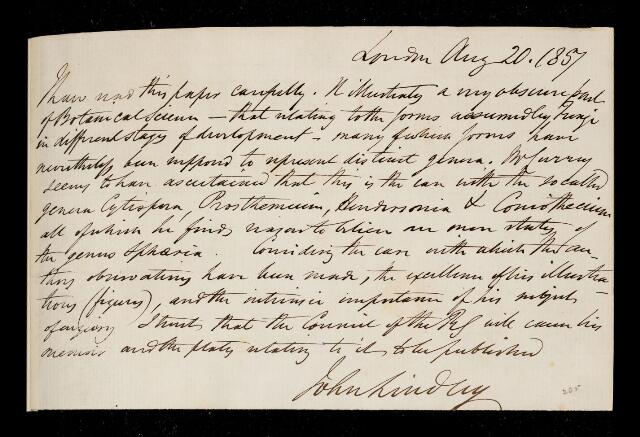 London Aug 20. 1857
I have read this paper carefully. It illustrates a very obscure part
of Botanical Science — that relating to the forms assumed by Fungi
in different stages of development — many of which forms have
nevertheless been supposed to represent distinct genera. Mr Currey
seems to have ascertained that this is the case with the so called
genera Cytispora, Prosthemium, Hendersonia & Coniothecium
all of which he finds reason to believe are mere states of
the genus Sphæria. Considering the care with which the au-
thors observations have been made, the excellence of his illustra-
tions (figures), and the intrinsic importance of his subject
of inquiry I trust that the Council of the RS will cause his
memoir and the plates relating to it to be published
John Lindley
205